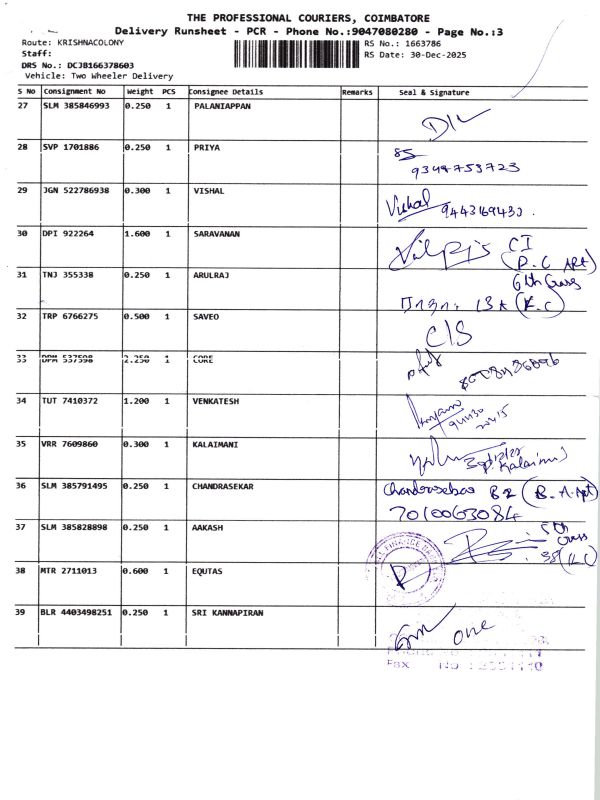 THE PROFESSIONAL COURIERS, COIMBATORE
Delivery Runsheet - PCR - Phone No.:9047080280 - Page No.:3
Route: KRISHNACOLONY
RS No.: 1663786
Staff:
RS Date: 30-Dec-2025
DRS No.: DCJB166378603
Vehicle: Two Wheeler Delivery
S No Consignment No Weight PCS Consignee Details Remarks Seal & Signature
27 SLM 385846993 0.250 1 PALANIAPPAN
28 SVP 1701886 0.250 1 PRIYA
9344753723
29 JGN 522786938 0.300 1 VISHAL Vishal
9443169433.
30 DPI 922264 1.600 1 SARAVANAN
CI
31 TNJ 355338 0.250 1 ARULRAJ
6th Cross
32 TRP 6766275 0.500 1 SAVEO
C/S
33 DPM 537598 2.250 1 CORE
34 TUT 7410372 1.200 1 VENKATESH
35 VRR 7609860 0.300 1 KALAIMANI
30/12/25
Kalaimani
36 SLM 385791495 0.250 1 CHANDRASEKAR Chandrasekar B2 (B.A.Apt)
7010063084
37 SLM 385828898 0.250 1 AAKASH
5th
Cross
38 (K.C)
38 MTR 2711013 0.600 1 EQUTAS
39 BLR 4403498251 0.250 1 SRI KANNAPIRAN
one